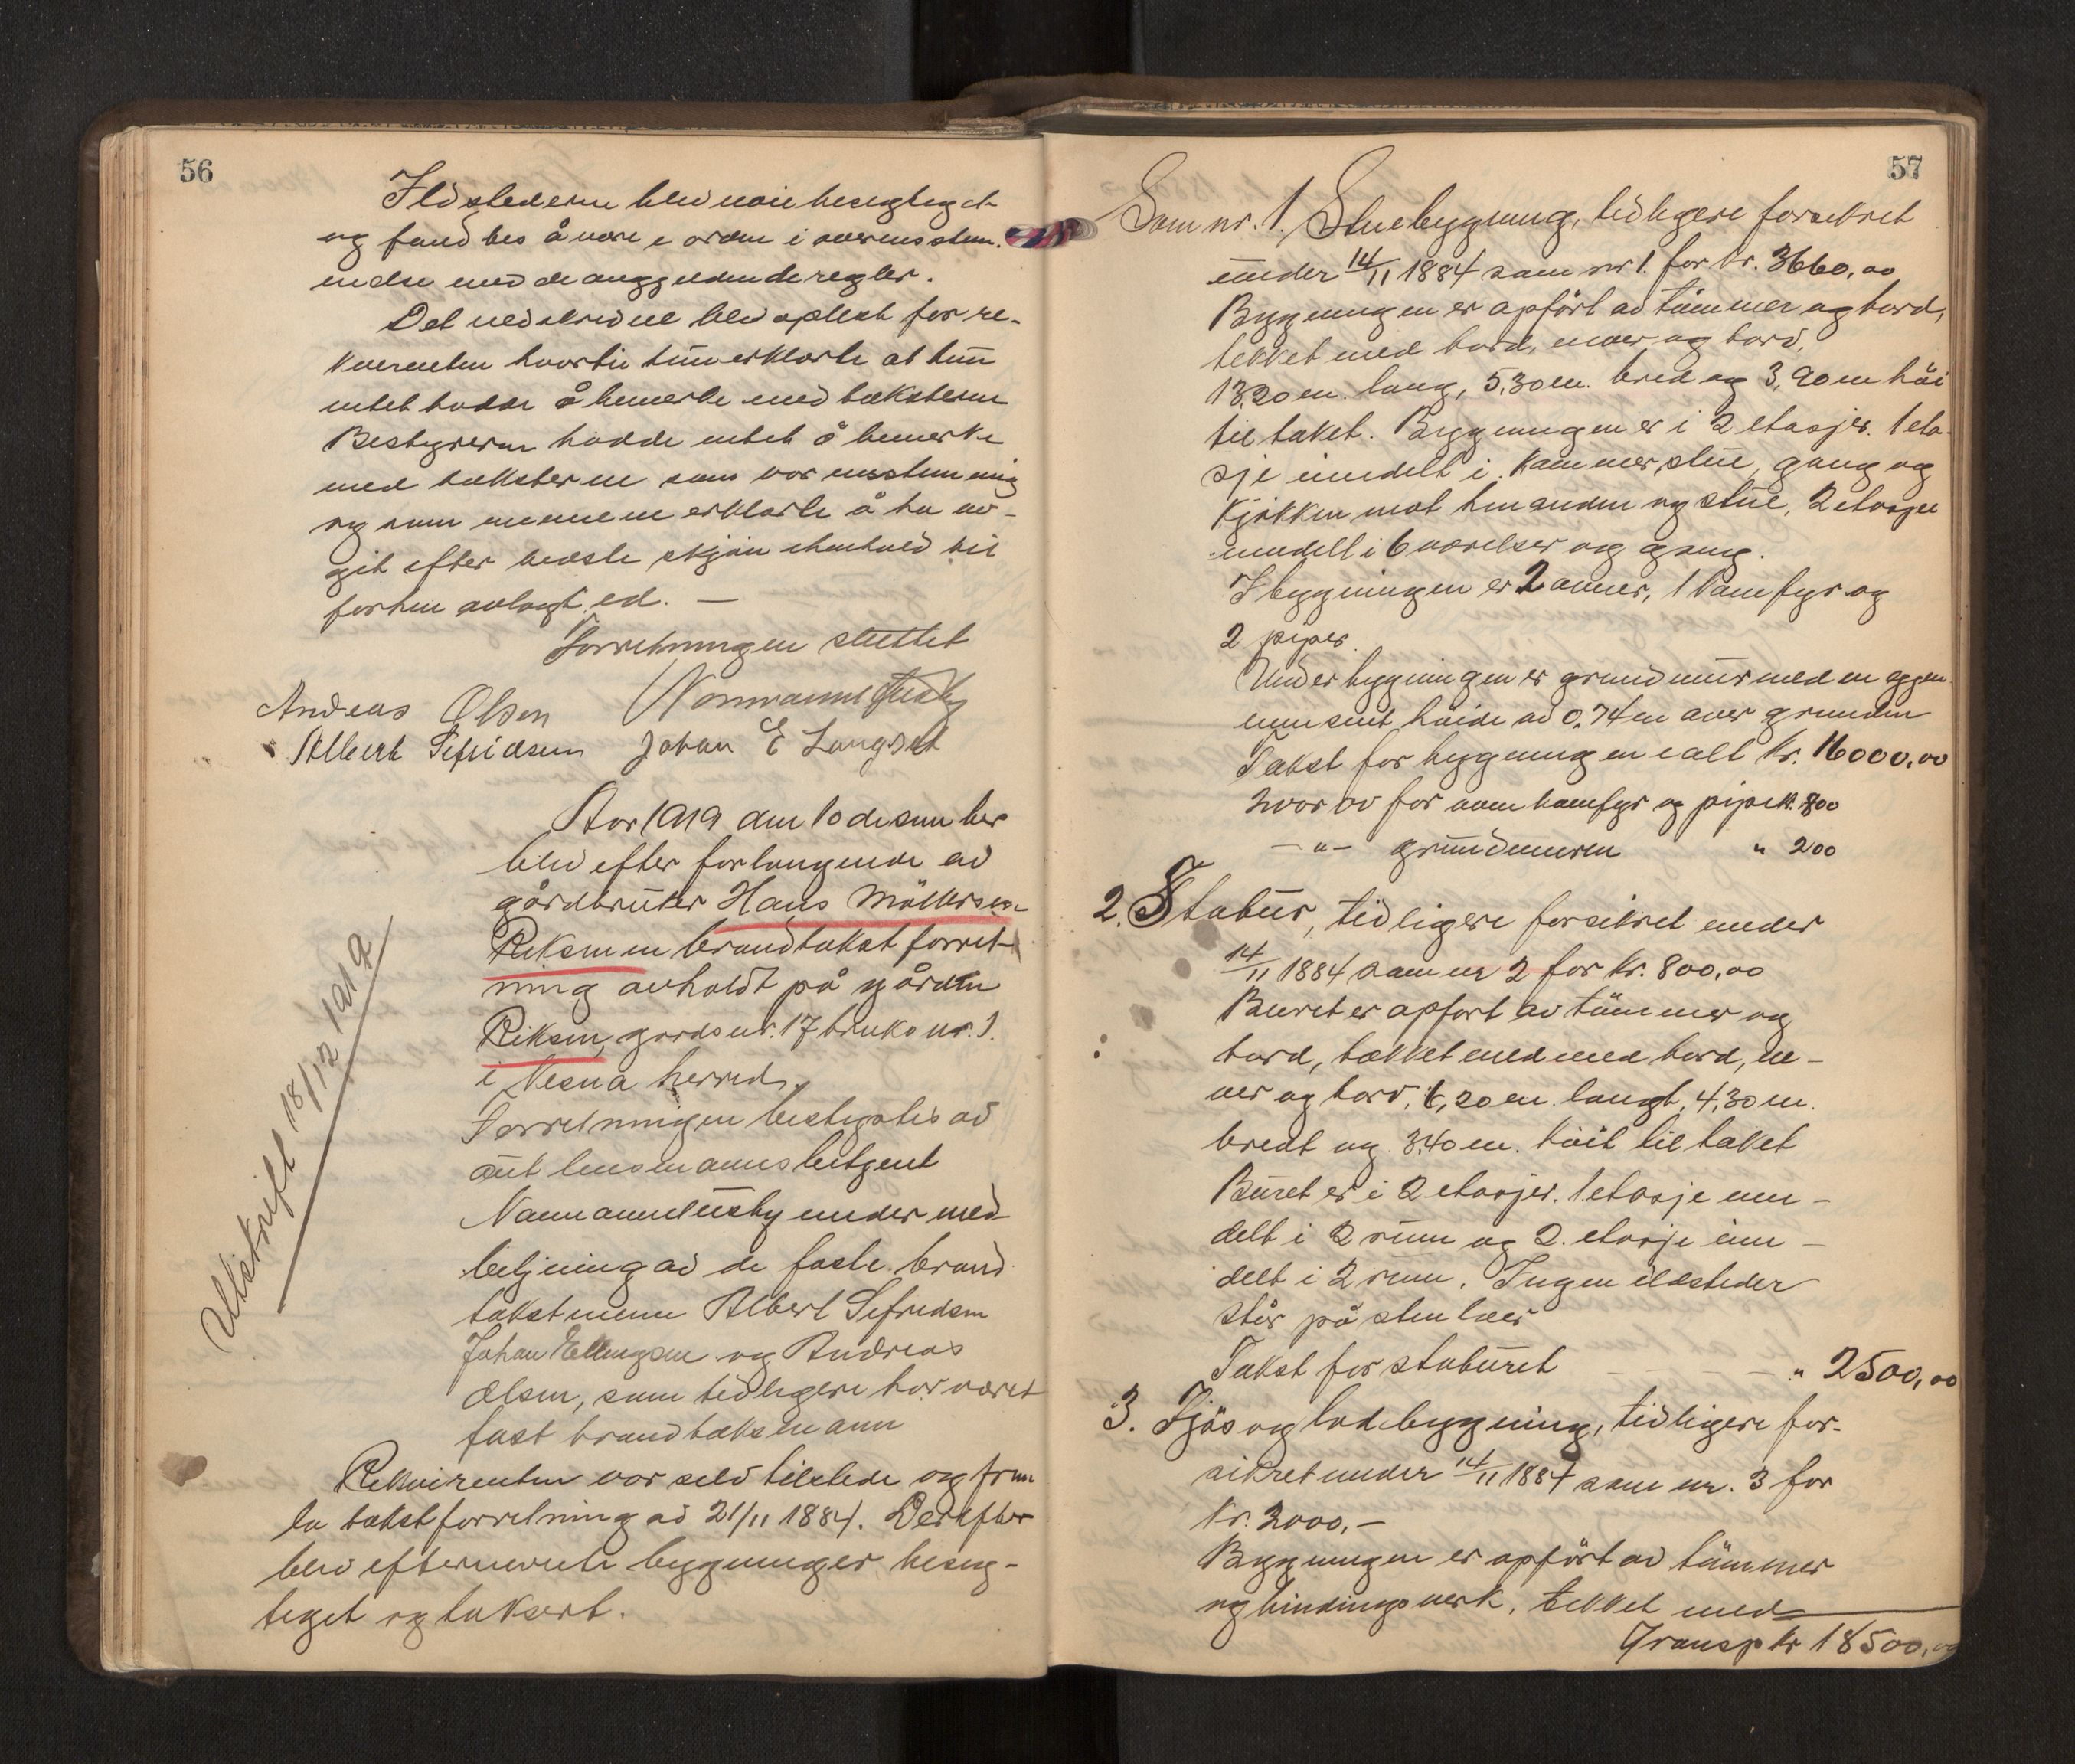 56
Ildstederne blev nøie besigtiget
og fandtes å være i orden i overensstem-
melse med de angjeldende regler.
Det nedskrevne blev oplest for re-
kvirenten hvortil hun erklærte at hun
intet hadde å bemerke med taksterne
Bestyreren hadde intet å bemerke
med taksterne som var enstemmig
og som mennene erklærte å ha av-
git efter bedste skjøn i henhold til
forhen avlagt ed. —
Forretningen sluttet
Andreas Olsen Normann Husby
Albert Sefridsen Johan E Langset
Aar 1919 den 10 desember
blev efter forlangende av
gårdbruker Hans Möllersen
Riksen en brandtakst forret-
ning avholdt på gården
Riksen, gårds nr. 17 bruks nr. 1.
i Nesna herred.
Forretningen bestyrtes av
aut lensmannsbetjent
Normann Husby under med-
betjening av de faste brand
takstmenn Albert Sefridsen
Johan Ellingsen og Andreas
Olsen, som tidligere har været
fast brandtakstmann
Utskrift 18/12 1919
Rekvirenten var selv tilstede og frem
la takstforretning av 21/11 1884. Derefter
blev efternevnte bygninger besig-
tiget og taksert.
57
Som nr. 1. Stuebygning, tidligere forsikret
under 14/11 1884 som nr 1. for kr. 3660,00
Bygningen er opfört av tömmer og bord,
tekket med bord, never og torv,
13,20 m. lang, 5,30 m. bred og 3,90 m höi
til taket. Bygningen er i 2 etasjer. 1 eta-
sje inndelt i kammer, stue, gang og
kjökken mot hinanden og stue, 2 etasje
inndelt i 6 værelser og gang.
I bygningen er 2 ovner, 1 kamfyr og
2 piper.
Under bygningen er grundmur med en gjen-
nemsnit höide av 0,74 m over grunden
Takst for bygningen i alt kr. 16000,00
hvorav for ovn kamfyr og pipe kr. 800
—"— grundmuren " 200
2. Stabur, tidligere forsikret under
14/11 1884 som nr 2 for kr. 800,00
Buret er opført av tömmer og
bord, tækket med med bord, ne-
ver og torv, 6,20 m. langt, 4,30 m.
bredt og 3,40 m. höit til taket
Buret er i 2 etasjer. 1 etasje inn-
delt i 2 rum og 2. etasje inn-
delt i 2 rum. Ingen ildsteder
står på sten læer
Takst for staburet " 2500,00
3. Fjös og ladebygning, tidligere for-
sikret under 14/11 1884 som nr. 3 for
kr. 2000.—
Bygningen er opfört av tömmer
og bindingsverk, tekket med
Transp kr 18500,00